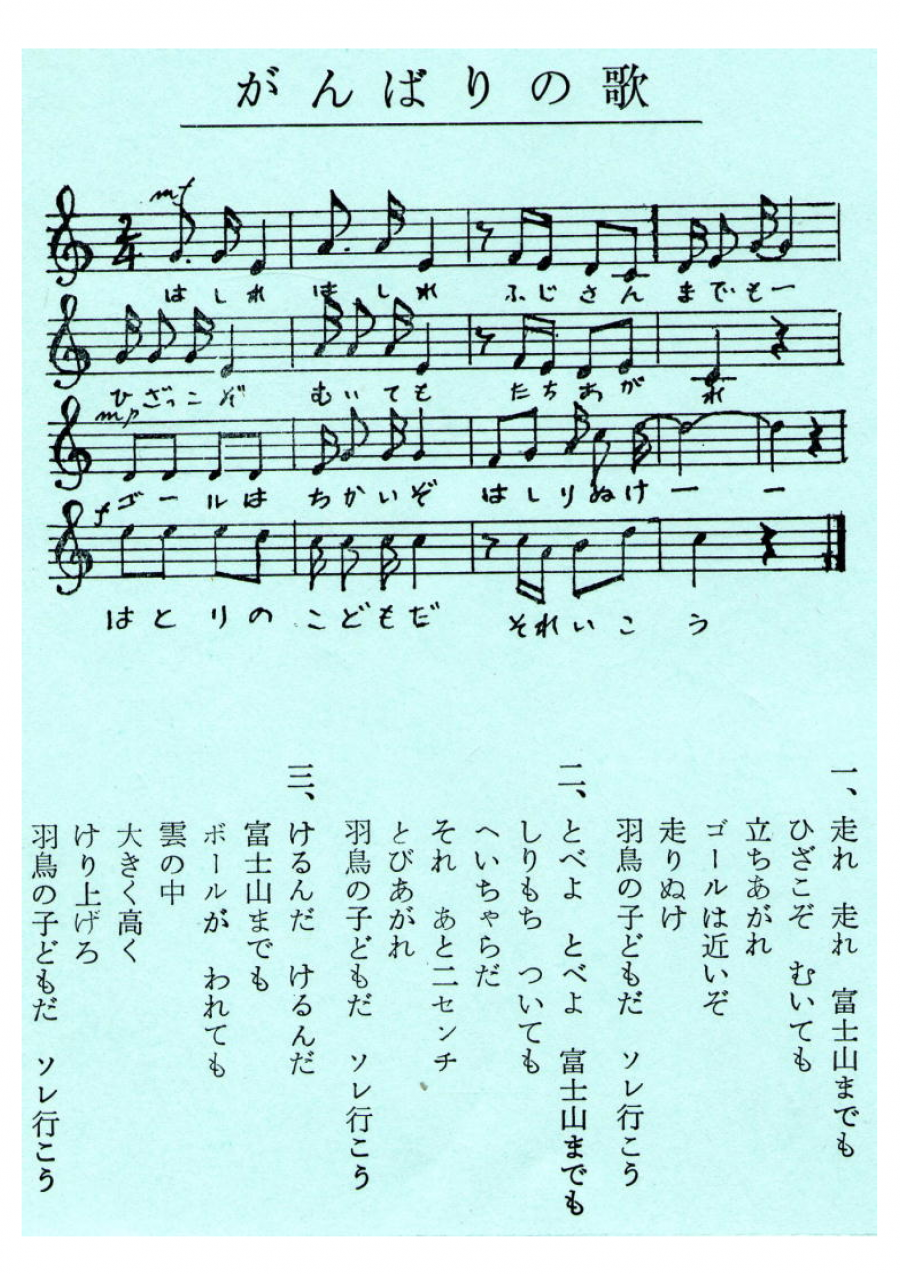 がんばりの歌
mf
2/4
はしれ はしれ ふじさん までもー
ひざっこぞ むいても たちあが れ
mp
ゴールは ちかいぞ はしりぬけー ー
f
はとりの こどもだ それいこ う
一、走れ 走れ 富士山までも
ひざこぞ むいても
立ちあがれ
ゴールは近いぞ
走りぬけ
羽鳥の子どもだ ソレ行こう
二、とべよ とべよ 富士山までも
しりもち ついても
へいちゃらだ
それ あと二センチ
とびあがれ
羽鳥の子どもだ ソレ行こう
三、けるんだ けるんだ
富士山までも
ボールが われても
雲の中
大きく高く
けり上げろ
羽鳥の子どもだ ソレ行こう